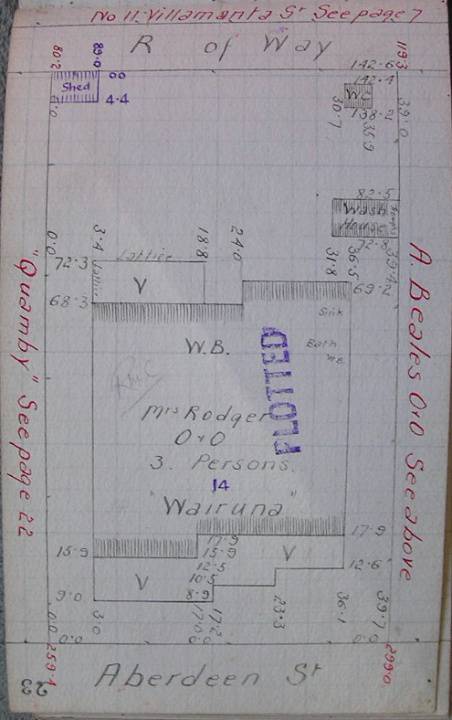 No 11. Villamanta St See page 7
R of Way
80.2
89.0
0.0
4.4
Shed
0.0
119.3
142.6
142.4
W.C.
138.2
30.7
35.9
39.0
82.5
Wash
House
72.8
39.4
0.0
3.4
Lattice
18.8
24.0
31.8
36.5
72.3
68.3
V
69.2
Sink
Bath
W.B.
PLOTTED
"Quamby" See page 22
A. Beales O+O See above
Mrs Rodger
O+O
3. Persons.
J4
"Wairuna"
17.9
17.9
15.9
15.9
12.5
10.5
8.9
V
V
12.6
9.0
3.0
17.0
17.2
23.3
36.1
39.7
0.0
0.0
0.0
0.0
259.1
299.0
Aberdeen St
23